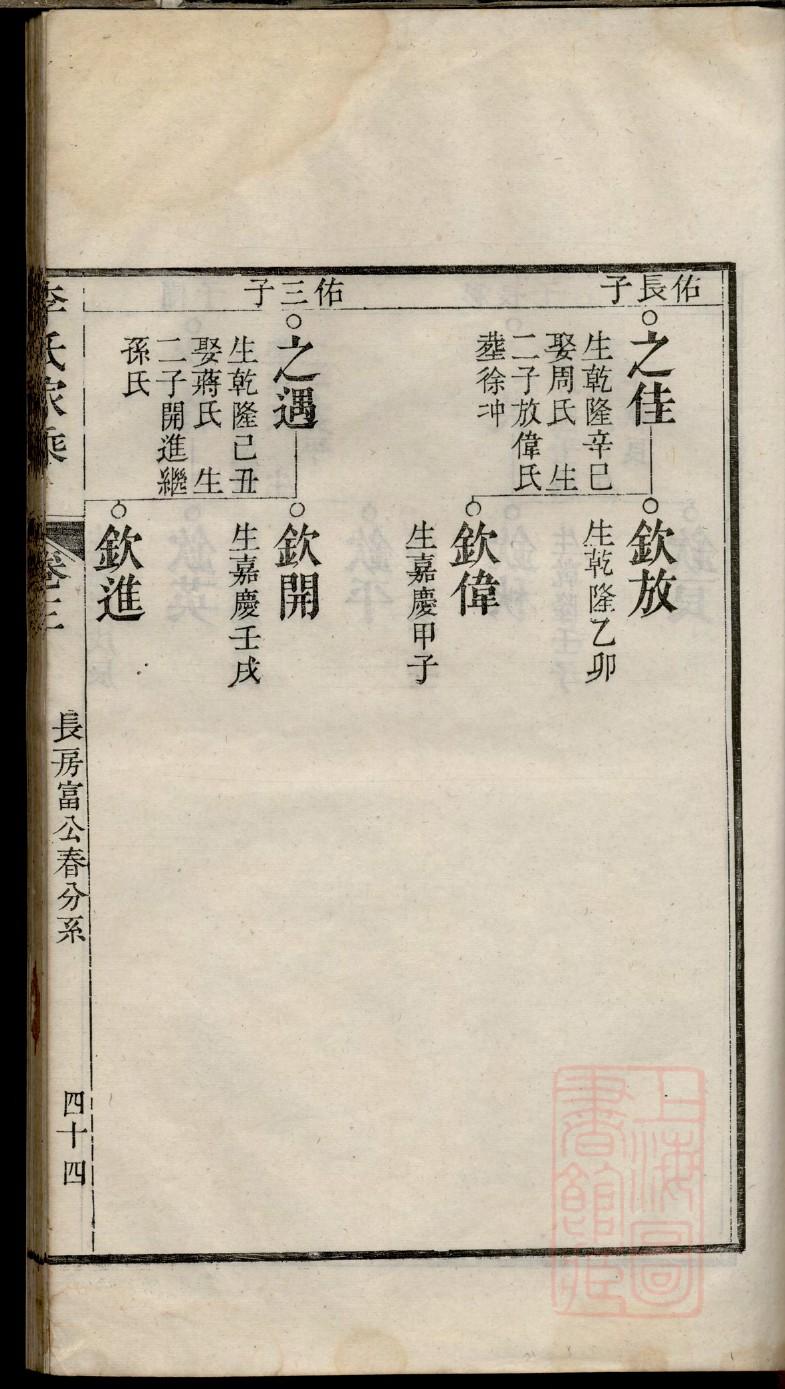 佑長子
之佳
生乾隆辛巳
娶周氏 生
二子放偉氏
塟徐冲
欽放
生乾隆乙卯
欽偉
生嘉慶甲子
佑三子
之遇
生乾隆己丑
娶蔣氏 生
二子開進繼
孫氏
欽開
生嘉慶壬戌
欽進
李氏家乘
卷三
長房富公春分系
四十四
上海圖
書館藏